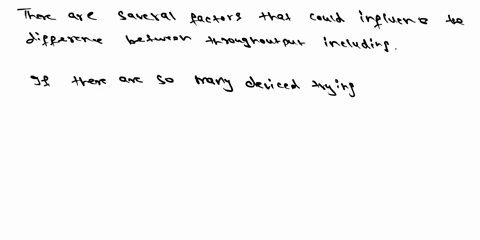 There are several factors that could influence the
difference between throughoutput including.
If there are so many deviced trying